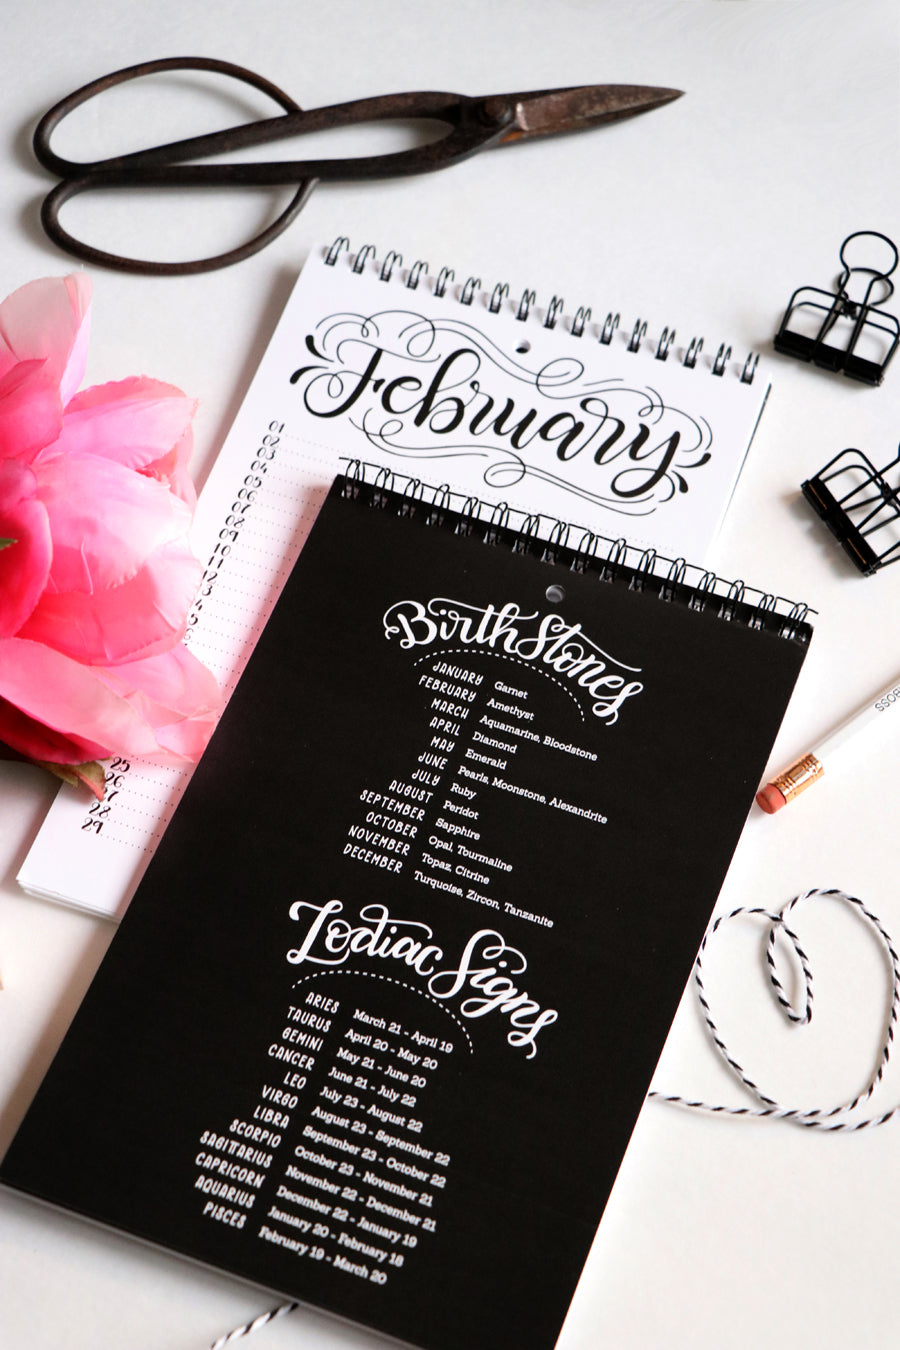 February
01
02
03
04
05
06
07
08
09
10
11
12
13
25
26
27
28
29
BirthStones
JANUARY Garnet
FEBRUARY Amethyst
MARCH Aquamarine, Bloodstone
APRIL Diamond
MAY Emerald
JUNE Pearls, Moonstone, Alexandrite
JULY Ruby
AUGUST Peridot
SEPTEMBER Sapphire
OCTOBER Opal, Tourmaline
NOVEMBER Topaz, Citrine
DECEMBER Turquoise, Zircon, Tanzanite
Zodiac Signs
ARIES March 21 - April 19
TAURUS April 20 - May 20
GEMINI May 21 - June 20
CANCER June 21 - July 22
LEO July 23 - August 22
VIRGO August 23 - September 22
LIBRA September 23 - October 22
SCORPIO October 23 - November 21
SAGITARIUS November 22 - December 21
CAPRICORN December 22 - January 19
AQUARIUS January 20 - February 18
PISCES February 19 - March 20
BOSS